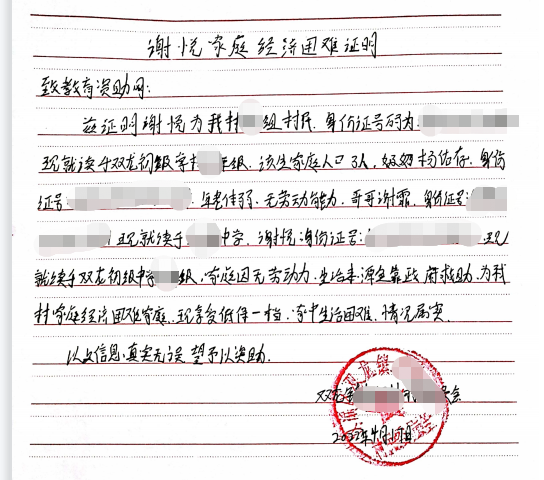 谢悦家庭经济困难证明
致教育资助网:
兹证明谢悦为我村 组村民,身份证号码为:
现就读于双龙初级学 年级,该生家庭人口3人,奶奶杨佑存,身份
证号: 年老体弱,无劳动能力,哥哥谢霜,身份证号:
现就读于 中学,谢悦身份证号: 现
就读双龙初级中学 级,家庭因无劳动力,生活来源全靠政府救助,为我
村家庭经济困难家庭,现享受低保一档,家中生活困难,情况属实
以上信息真实无误 望予以资助.
双龙 会
2022年 月 日